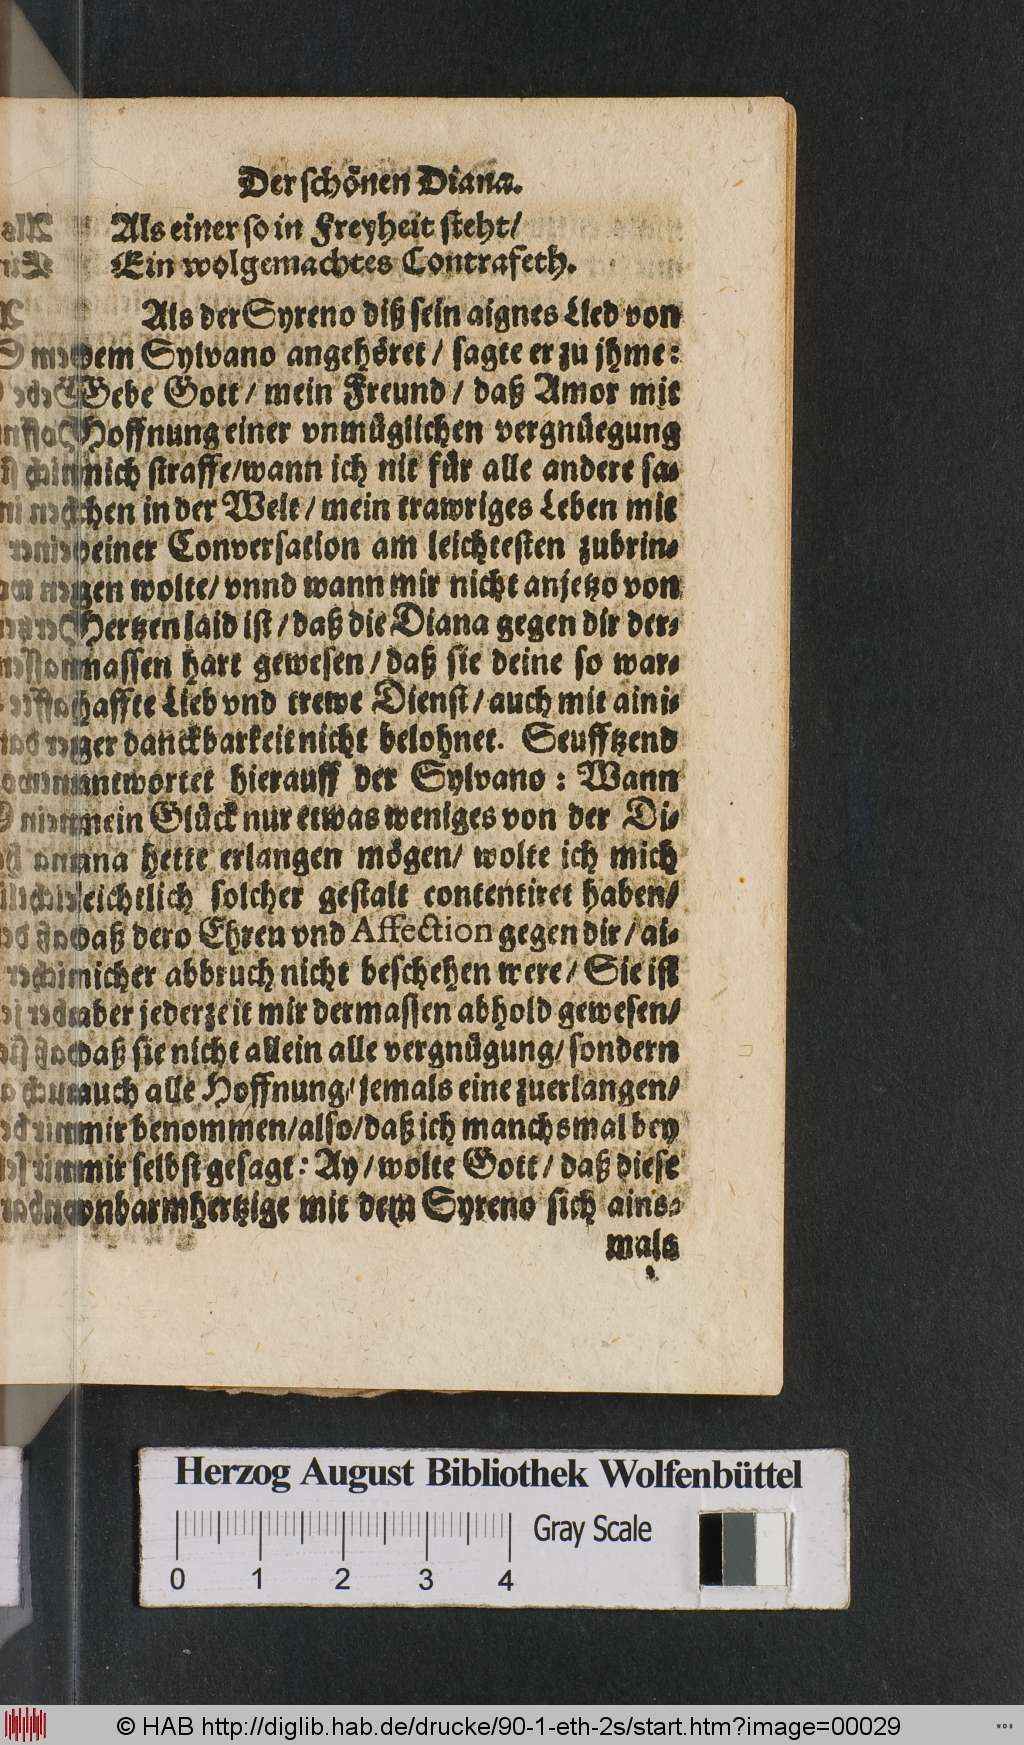 Der schönen Diana.
Als einer so in Freyheit steht/
Ein wolgemachtes Contrafeth.
Als der Syreno diß sein aignes Lied von
dem Sylvano angehöret / sagte er zu jhme:
Gebe Gott / mein Freund / daß Amor mit
Hoffnung einer vnmüglichen vergnüegung
mich straffe/wann ich nit für alle andere sa-
chen in der Welt / mein trawriges Leben mit
deiner Conversation am leichtesten zubrin-
gen wolte/ vnnd wann mir nicht anjetzo von
Hertzen laid ist / daß die Diana gegen dir der-
massen hart gewesen / daß sie deine so war-
haffte Lieb vnd trewe Dienst / auch mit aini-
ger danckbarkeit nicht belohnet. Seufftzend
antwortet hierauff der Sylvano: Wann
mein Glück nur etwas weniges von der Di-
ana hette erlangen mögen/ wolte ich mich
leichtlich solcher gestalt contentiret haben/
daß dero Ehren vnd Affection gegen dir / ai-
nicher abbruch nicht beschehen were / Sie ist
aber jederzeit mir dermassen abhold gewesen/
daß sie nicht allein alle vergnügung/ sondern
auch alle Hoffnung/ jemals eine zuerlangen/
mir benommen/also/daß ich manchsmal bey
mir selbst gesagt: Ay / wolte Gott / daß diese
vnbarmhertzige mit dem Syreno sich ains-
mals
Herzog August Bibliothek Wolfenbüttel
Gray Scale
0 1 2 3 4
© HAB http://diglib.hab.de/drucke/90-1-eth-2s/start.htm?image=00029